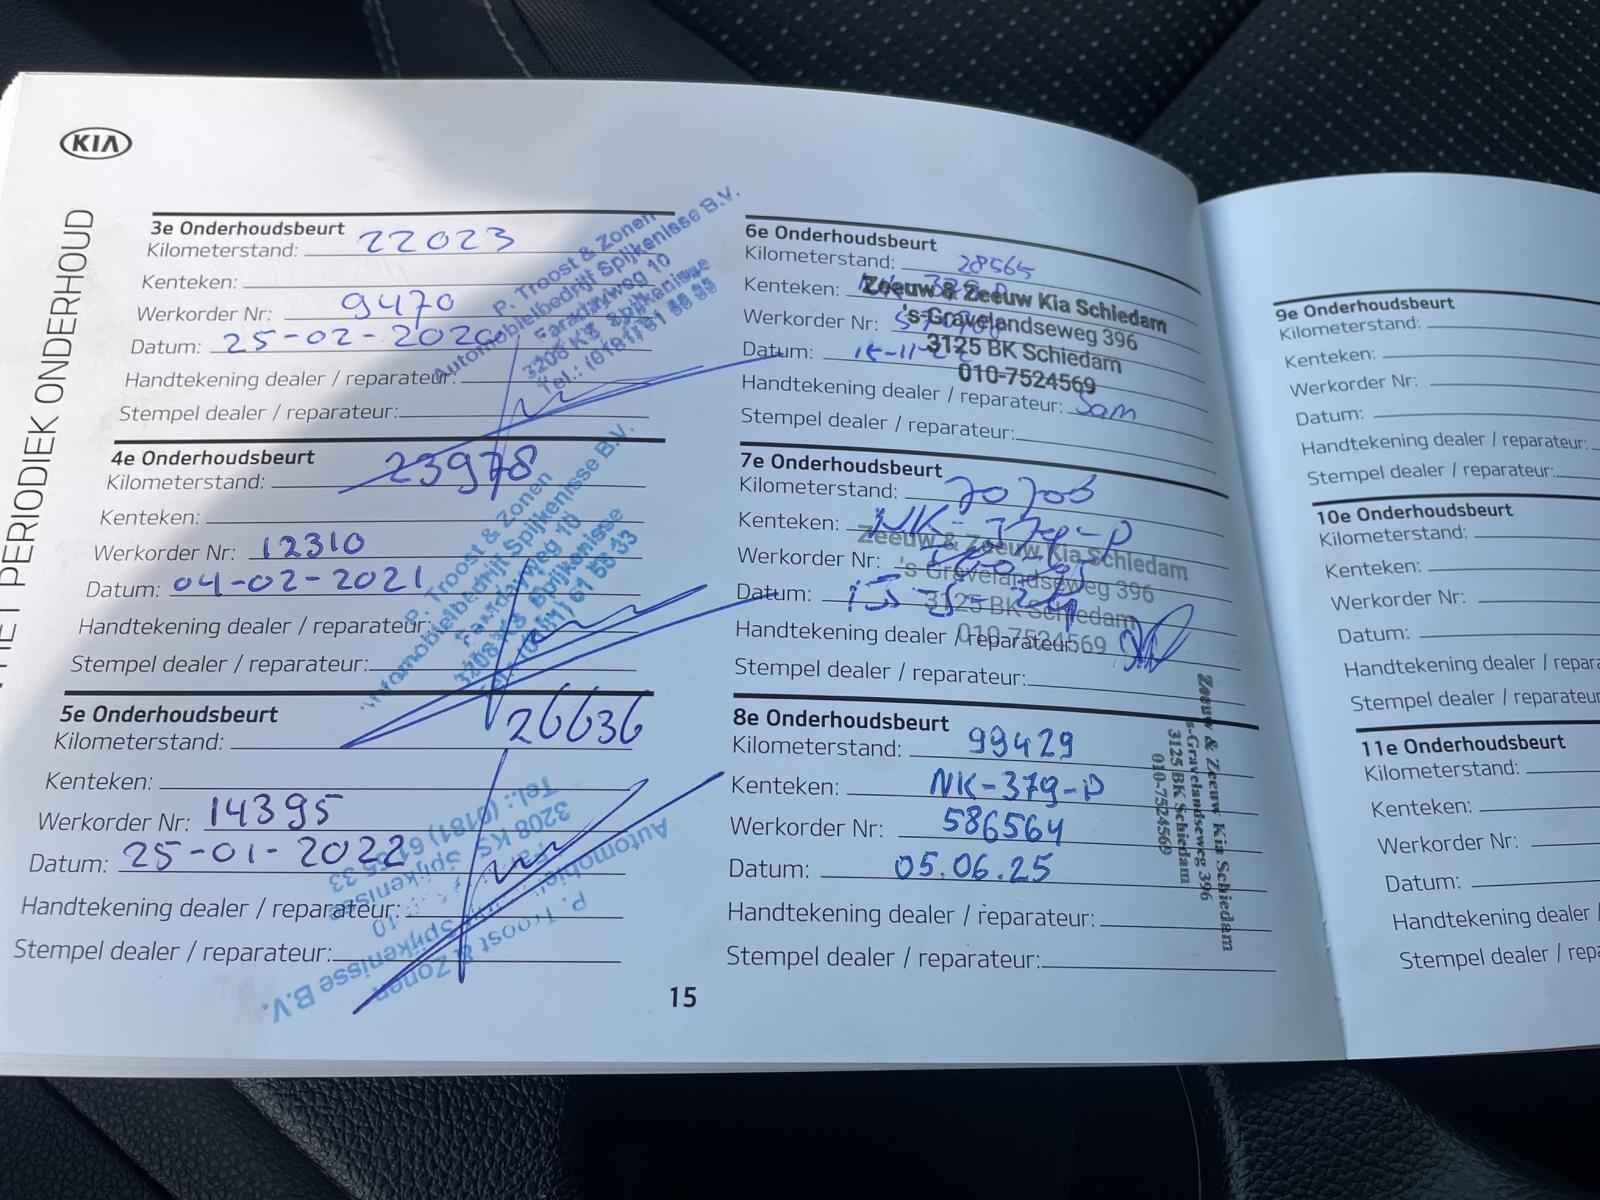 KIA
HET PERIODIEK ONDERHOUD
3e Onderhoudsbeurt
Kilometerstand: 22023
Kenteken:
Werkorder Nr: 9470
Datum: 25-02-2020
Handtekening dealer / reparateur:
Stempel dealer / reparateur:
P. Troost & Zonen
Automobielbedrijf Spijkenisse B.V.
Faradayweg 10
3208 KS Spijkenisse
Tel.: (0181) 61 58 33
4e Onderhoudsbeurt
Kilometerstand: 23978
Kenteken:
Werkorder Nr: 12310
Datum: 04-02-2021
Handtekening dealer / reparateur:
Stempel dealer / reparateur:
P. Troost & Zonen
Automobielbedrijf Spijkenisse B.V.
Faradayweg 10
3208 KS Spijkenisse
Tel.: (0181) 61 58 33
5e Onderhoudsbeurt
Kilometerstand: 26636
Kenteken:
Werkorder Nr: 14395
Datum: 25-01-2022
Handtekening dealer / reparateur:
Stempel dealer / reparateur:
P. Troost & Zonen
Automobielbedrijf Spijkenisse B.V.
10
3208 KS Spijkenisse
Tel.: (0181) 61 58 33
6e Onderhoudsbeurt
Kilometerstand: 28565
Kenteken:
Werkorder Nr:
Datum:
Handtekening dealer / reparateur: Sam
Stempel dealer / reparateur:
Zeeuw & Zeeuw Kia Schiedam
's-Gravelandseweg 396
3125 BK Schiedam
010-7524569
7e Onderhoudsbeurt
Kilometerstand: 70706
Kenteken: NK-379-P
Werkorder Nr:
Datum:
Handtekening dealer / reparateur:
Stempel dealer / reparateur:
Zeeuw & Zeeuw Kia Schiedam
's-Gravelandseweg 396
3125 BK Schiedam
010-7524569
8e Onderhoudsbeurt
Kilometerstand: 99429
Kenteken: NK-379-P
Werkorder Nr: 586564
Datum: 05.06.25
Handtekening dealer / reparateur:
Stempel dealer / reparateur:
Zeeuw & Zeeuw Kia Schiedam
's-Gravelandseweg 396
3125 BK Schiedam
010-7524569
15
9e Onderhoudsbeurt
Kilometerstand:
Kenteken:
Werkorder Nr:
Datum:
Handtekening dealer / reparateur:
Stempel dealer / reparateur:
10e Onderhoudsbeurt
Kilometerstand:
Kenteken:
Werkorder Nr:
Datum:
Handtekening dealer / repara
Stempel dealer / reparateur
11e Onderhoudsbeurt
Kilometerstand:
Kenteken:
Werkorder Nr:
Datum:
Handtekening dealer /
Stempel dealer / repa